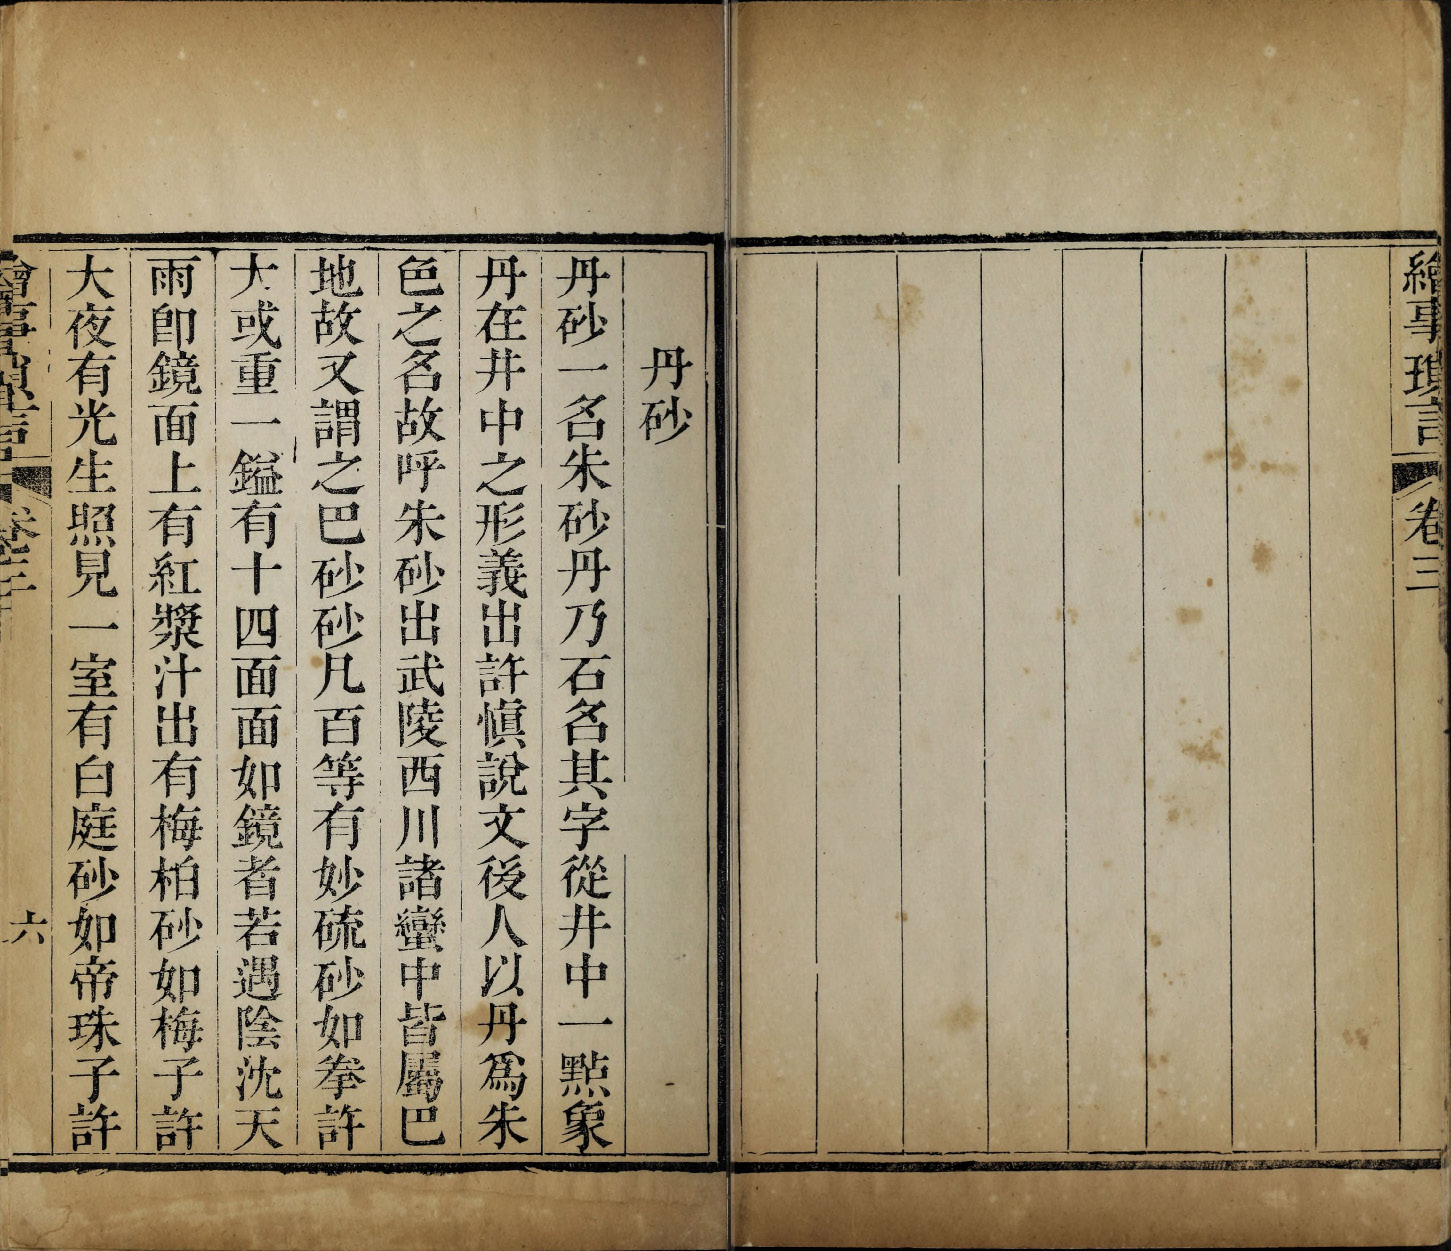 繪事瑣言
卷三
丹砂
丹砂一名朱砂丹乃石名其字從井中一點象
丹在井中之形義出許愼說文後人以丹爲朱
色之名故呼朱砂出武陵西川諸蠻中皆屬巴
地故又謂之巴砂砂凡百等有妙硫砂如拳許
大或重一鎰有十四面面如鏡者若遇陰沈天
雨卽鏡面上有紅漿汁出有梅柏砂如梅子許
大夜有光生照見一室有白庭砂如帝珠子許
繪事瑣言
卷三
六